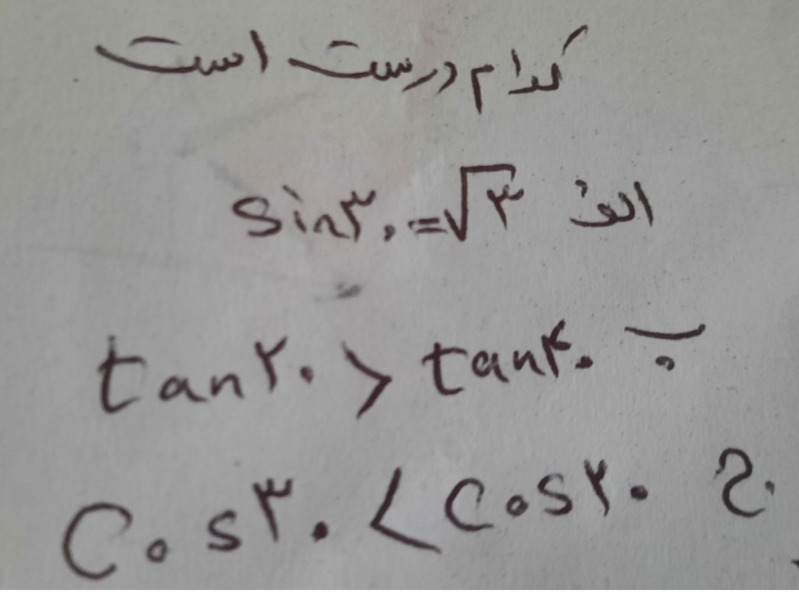 کدام درست است
الف sin۳۰=√۳
ب tan۲۰ > tan۴۰
ج Cos۳۰ < Cos۲۰